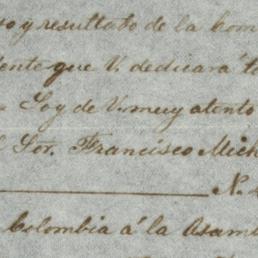 so y resultado de la com
ente que V. dedicará t
Soy de V. muy atento
l Sor. Francisco Mich
N.
Colombia á la Asamb